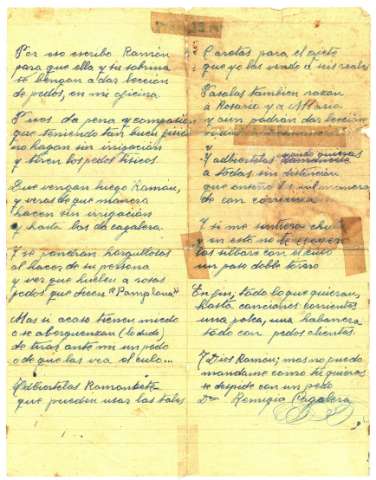 Por eso escribo Ramón
para que ella y su sobrina
se bengan a dar lección
de pedos, en mi oficina.
Pues da pena y compasión
que teniendo tan buen
no hagan sin irrigación
y tiren los pedos tísicos.
Que vengan luego Ramón,
y veras de que manera
hacen sin irrigación
y hasta les da cagalera.
Y se pondran horgullosas
al hacer de su persona
y ver que huelen a rosas
pedos que dices "Pamplona"
Mas si acaso tienen miedo
o se aberguenzan (lo dudo)
de tirar ante mi un pedo
o de que las vea el culo...
Adbiertelas
que pueden usar las tales
Caretas para el efeto
que yo las vendo a seis reales
Pasalas tambien razon
a Rosario y a Maria
y aun podrán dar lección
Y adbiertelas cuando quieras
a todas sin distinción
que enseño de mil maneras
de con corrience
Y si me
y en esto no
les silbare con el culo
un paso doble torero
En fin, todo lo que quieran,
hasta canciones corrientes
una polca, una habanera
todo con pedos
Y Dios Ramon; mas no puedo
mandame como tú quieras
se despide con un pedo
Dr Remigio Cagalera